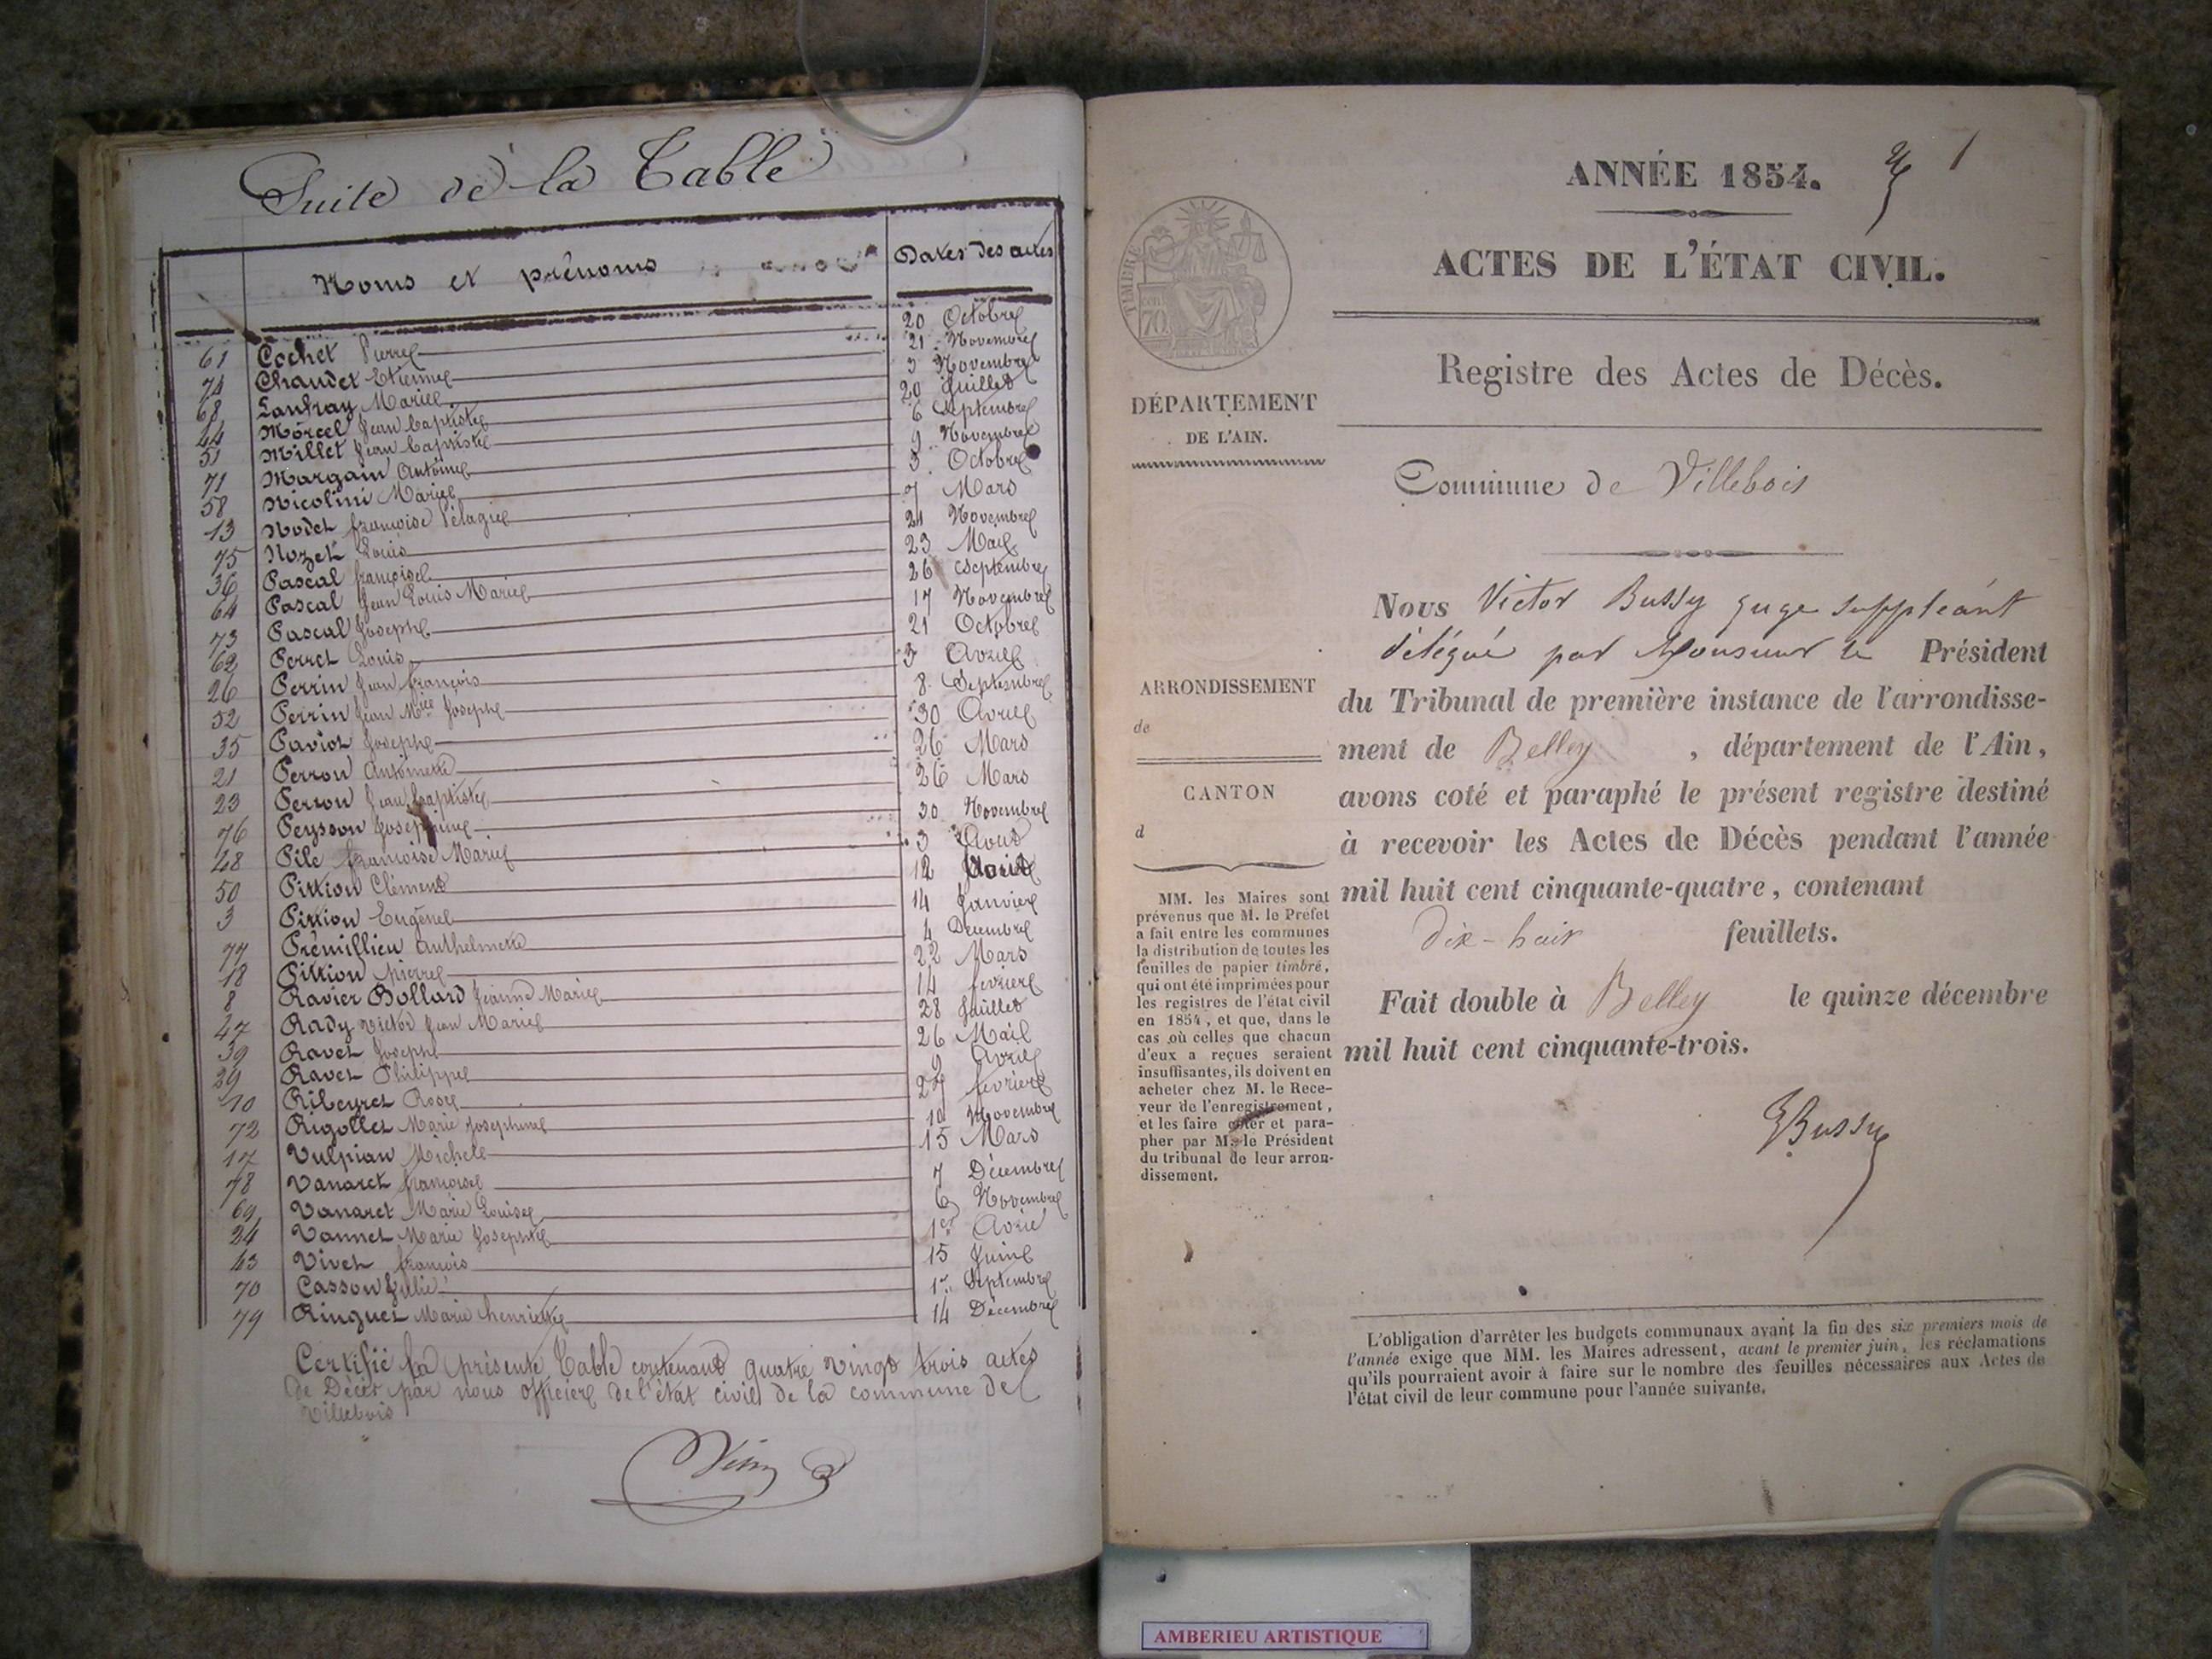 Suite de la Table
Noms et prénoms
Dates des actes
61 Cochet Pierre 20 Octobre
74 Chaudet Etienne 21 Novembre
68 Lanfray Marie 3 Novembre
44 Morcel Jean baptiste 20 Juillet
51 Millet Jean baptiste 6 Septembre
71 Margain Antoine 9 Novembre
58 Nicolini Marie 3 Octobre
13 Nodet françoise Pélagie 7 Mars
75 Nozet Louis 24 Novembre
36 Pascal françoise 23 Mai
64 Pascal Jean Louis Marie 26 Septembre
73 Pascal Joseph 17 Novembre
62 Perret Louis 21 Octobre
26 Perrin Jean françois 3 Avril
52 Perrin Jean Mie Joseph 8 Septembre
35 Paviot Joseph 30 Avril
21 Perron Antoinette 26 Mars
23 Perron Jean baptiste 26 Mars
76 Peysson Josephine 30 Novembre
48 Pile françoise Marie 3 Aout
50 Pittion Clément 12 Aout
3 Pittion Eugène 14 Janvier
77 Prémillieu anthelmette 4 Décembre
18 Pittion pierre 22 Mars
8 Ravier Bollard Jeanne Marie 14 fevrier
47 Rady victor Jean Marie 28 Juillet
39 Ravet Joseph 26 Mai
29 Ravet Philippe 9 Avril
10 Ribeyret Rose 27 fevrier
72 Rigollet Marie Josephine 10 Novembre
17 Vulpian Michele 15 Mars
78 Vanaret françoise 7 Décembre
69 Vanaret Marie Louise 6 Novembre
24 Vannet Marie Josephte 1er Avril
43 Vivet françois 15 Juin
70 Casson Julie 1er Septembre
79 Ringuet Marie henriette 14 Décembre
Certifié la présente Table contenant quatre vingt trois actes
de Décès par nous officier de l'état civil de la commune de
Villebois
ANNÉE 1854.
1
ACTES DE L'ÉTAT CIVIL.
Registre des Actes de Décès.
TIMBRE
70
DÉPARTEMENT
DE L'AIN.
ARRONDISSEMENT
de
CANTON
d
MM. les Maires sont
prévenus que M. le Préfet
a fait entre les communes
la distribution de toutes les
feuilles de papier timbré,
qui ont été imprimées pour
les registres de l'état civil
en 1854, et que, dans le
cas où celles que chacun
d'eux a reçues seraient
insuffisantes, ils doivent en
acheter chez M. le Rece-
veur de l'enregistrement,
et les faire coter et para-
pher par M. le Président
du tribunal de leur arron-
dissement.
Commune de Villebois
Nous Victor Bussy juge suppléant
délégué par Monsieur le Président
du Tribunal de première instance de l'arrondisse-
ment de Belley, département de l'Ain,
avons coté et paraphé le présent registre destiné
à recevoir les Actes de Décès pendant l'année
mil huit cent cinquante-quatre, contenant
dix-huit feuillets.
Fait double à Belley le quinze décembre
mil huit cent cinquante-trois.
VBussy
L'obligation d'arrêter les budgets communaux avant la fin des six premiers mois de
l'année exige que MM. les Maires adressent, avant le premier juin, les réclamations
qu'ils pourraient avoir à faire sur le nombre des feuilles nécessaires aux Actes de
l'état civil de leur commune pour l'année suivante.
AMBERIEU ARTISTIQUE